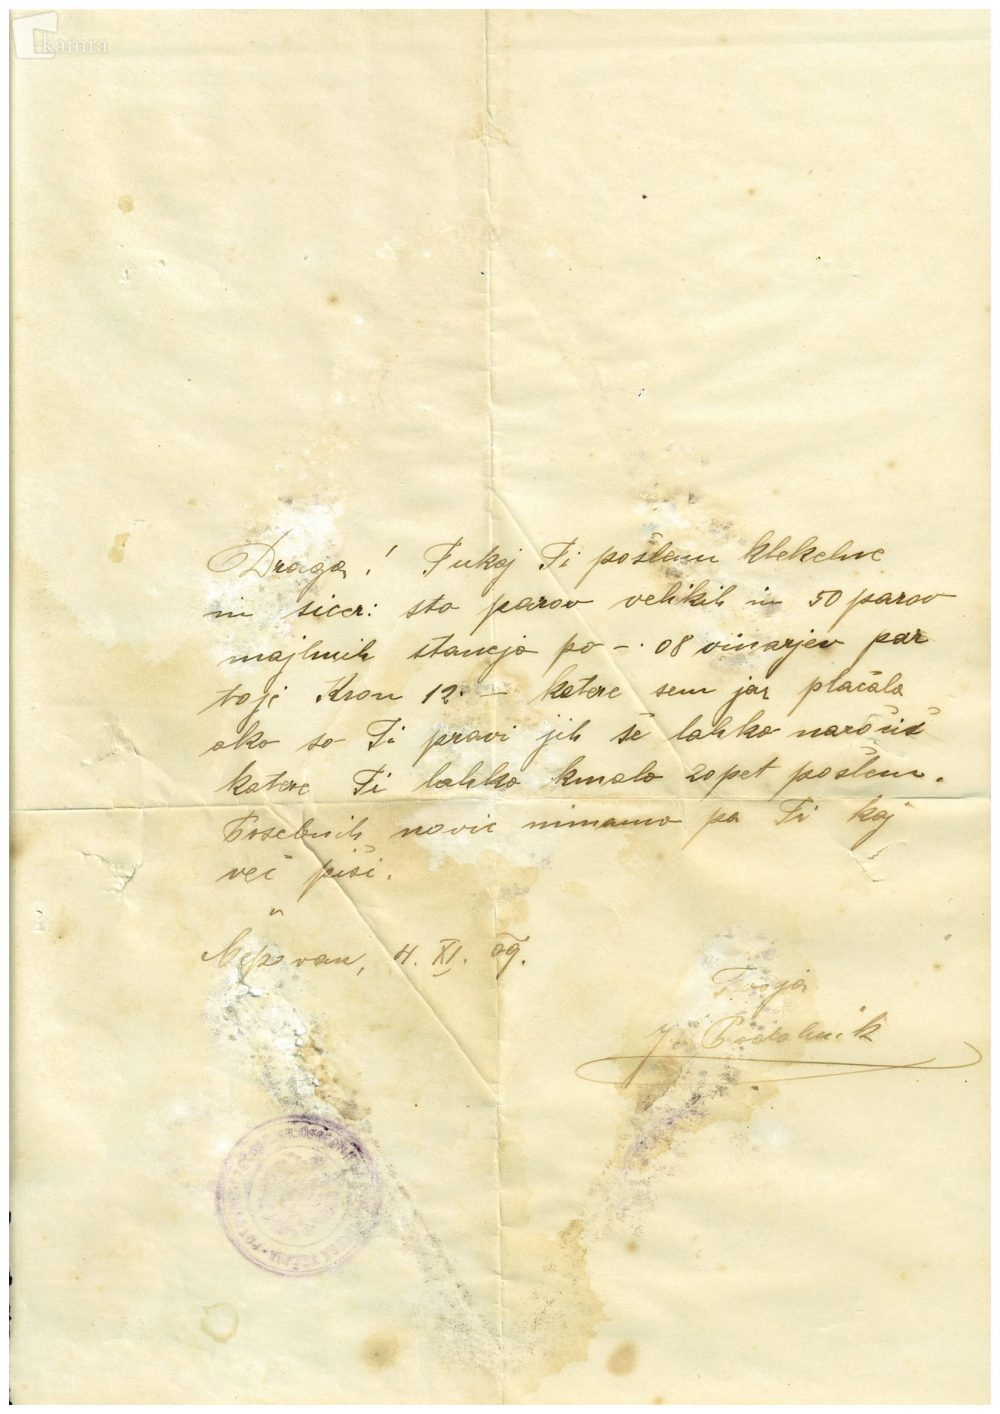 kamra
Draga! Tukaj Ti pošlem klekelne
in sicer: sto parov velikih in 50 parov
majhnih stanejo po -.08 vinarjev par
to je Kron 12.- katere sem jaz plačala
ako so Ti pravi jih še lahko naročiš
katere Ti lahko kmalo zopet pošlem.
Posebnih novic nimamo pa Ti kaj
več piši.
Čepovan, 4. XI. 09.
Tvoja
J.